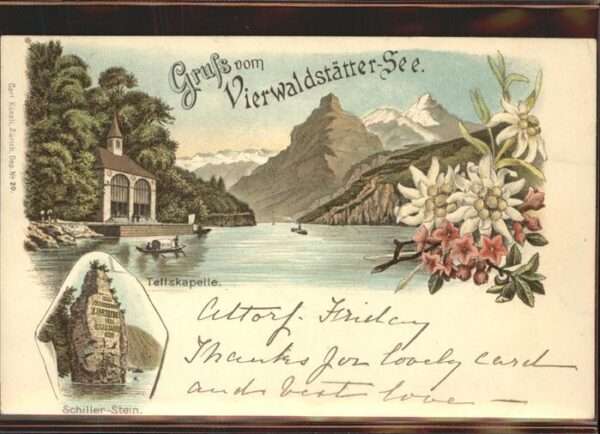 Gruss vom
Vierwaldstätter-See.
Carl Künzli, Zürich, Dep. No 20.
Tellskapelle.
Altorf. Friday
Thanks for lovely card
and best love —
Schiller-Stein.